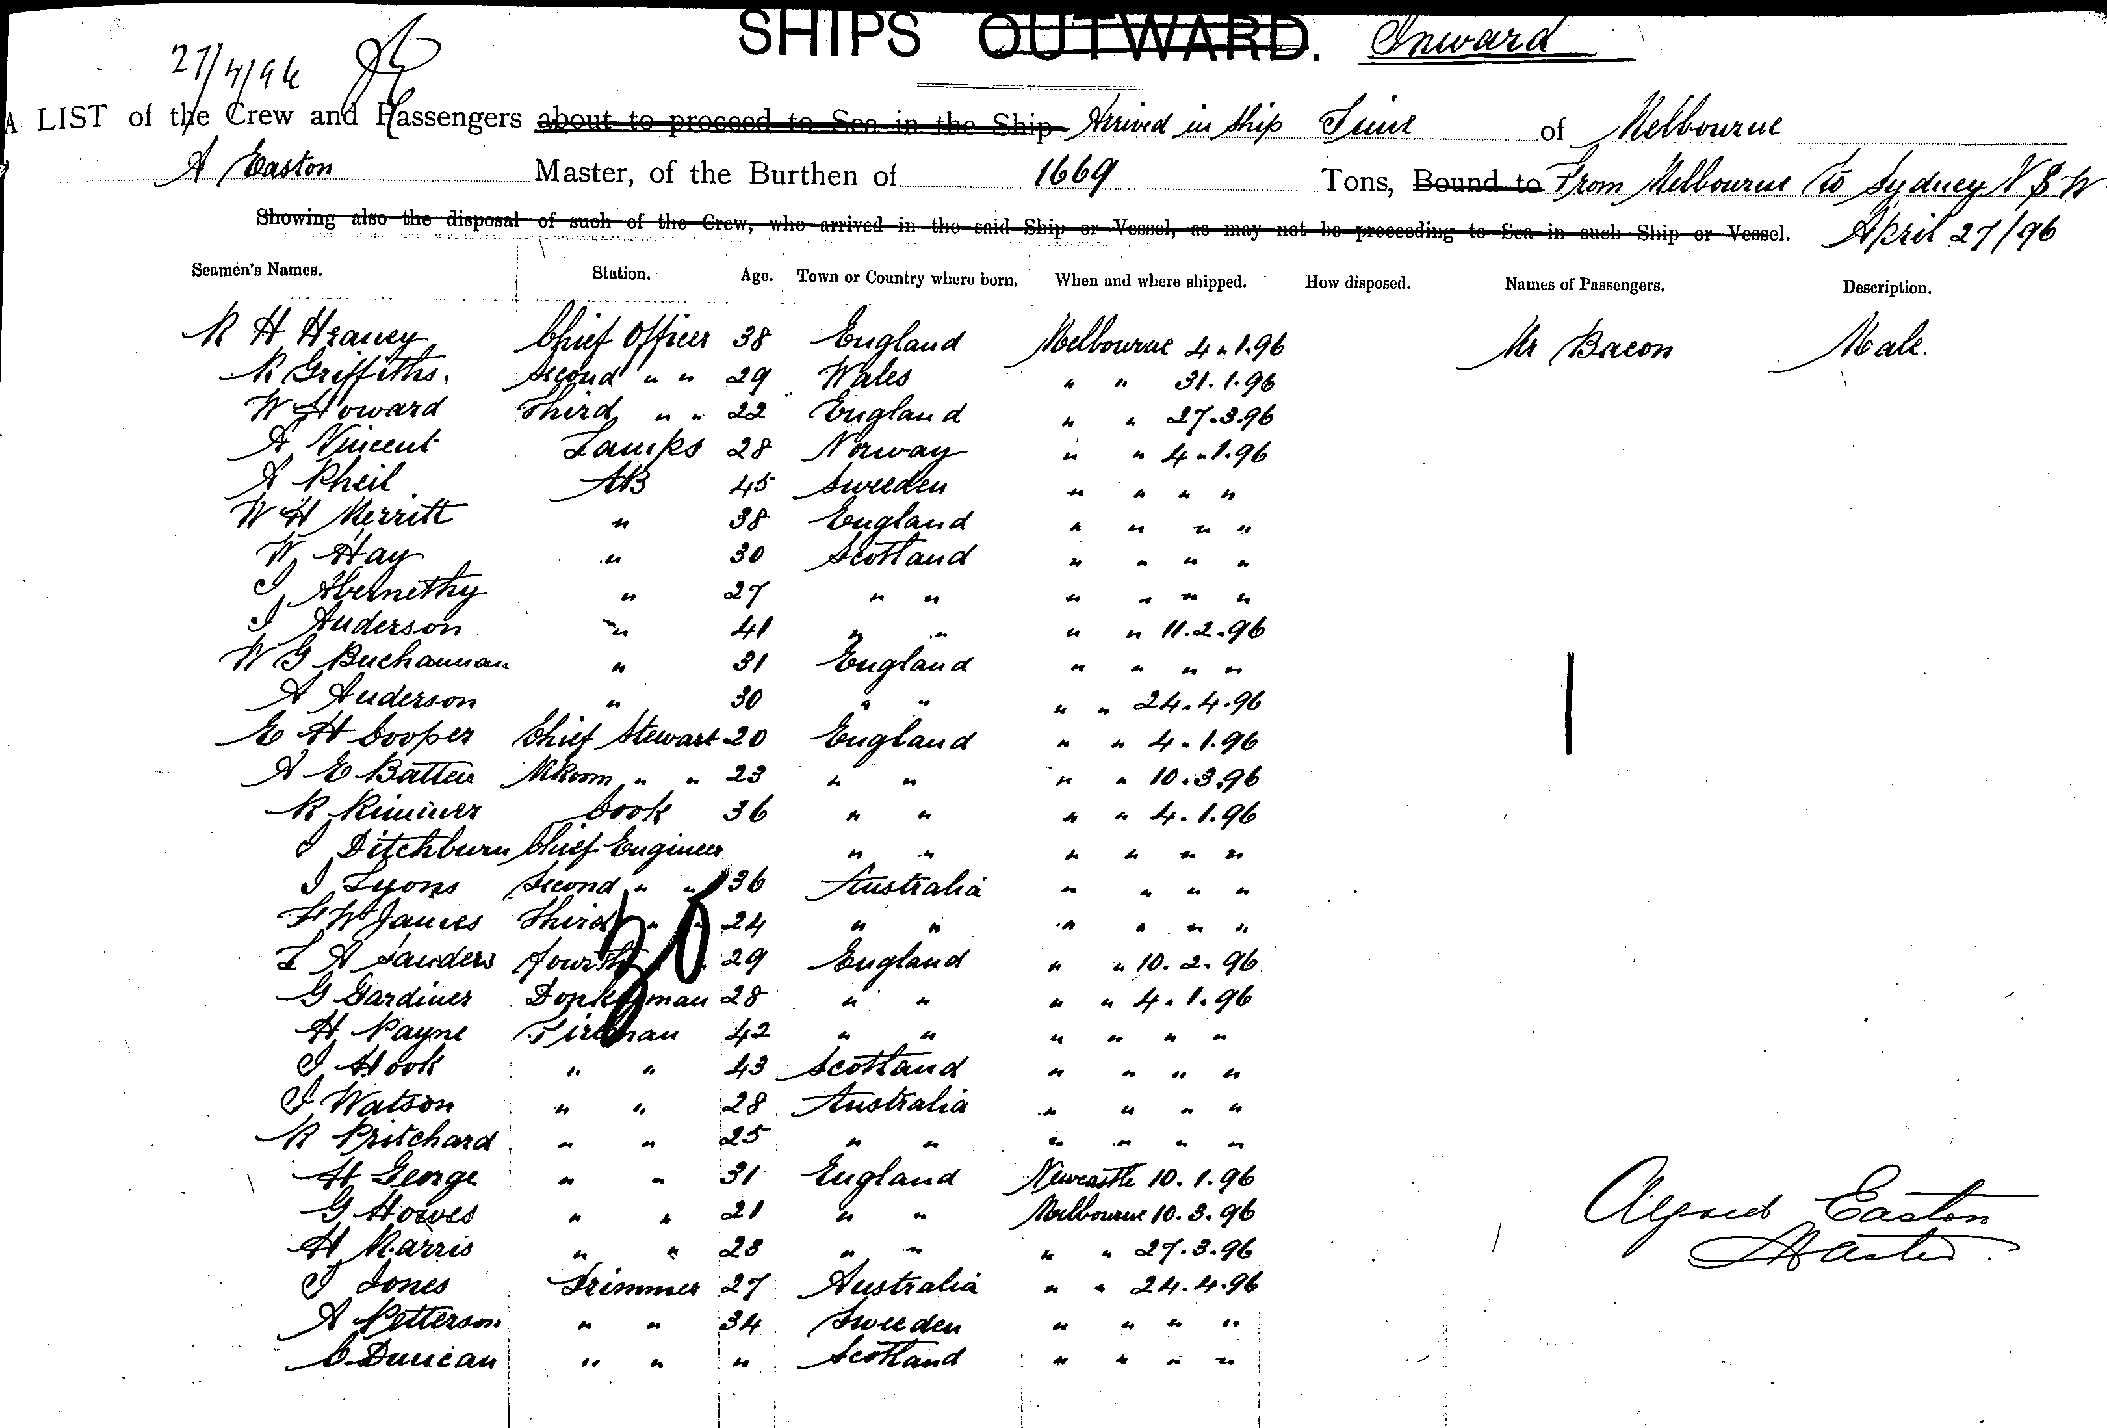 SHIPS OUTWARD. Inward
27/4/96
A LIST of the Crew and Passengers about to proceed to Sea in the Ship Arrived in Ship Time of Melbourne
A Easton Master, of the Burthen of 1669 Tons, Bound to From Melbourne to Sydney N S W
Showing also the disposal of such of the Crew, who arrived in the said Ship or Vessel, as may not be proceeding to Sea in such Ship or Vessel. April 27/96
Seamen's Names. Station. Age. Town or Country where born. When and where shipped. How disposed. Names of Passengers. Description.
R H Heaney Chief Officer 38 England Melbourne 4.1.96 Mr Bacon Male.
R Griffiths. Second " " 29 Wales " " 31.1.96
W Howard Third " " 22 England " " 27.3.96
A Vincent Lamps 28 Norway " " 4.1.96
A Pheil AB 45 Sweeden " " " "
W H Merritt " 38 England " " " "
W Hay " 30 Scotland " " " "
J Abernethy " 27 " " " " " "
J Anderson " 41 " " " " 11.2.96
W G Buchannan " 31 England " " " "
A Anderson " 30 " " " " 24.4.96
E H Cooper Chief Stewart 20 England " " 4.1.96
A E Batten MRoom " " 23 " " " " 10.3.96
R Rimmer Cook 36 " " " " 4.1.96
J Ditchburn Chief Engineer " " " " " "
J Lyons Second " " 36 Australia " " " "
F W James Third " " 24 " " " " " "
L A Sanders Fourth " 29 England " " 10.2.96
G Gardiner Donkeyman 28 " " " " 4.1.96
H Payne Fireman 42 " " " " " "
J Hook " " 43 Scotland " " " "
J Watson " " 28 Australia " " " "
R Pritchard " " 25 " " " " " "
H George " " 31 England Newcastle 10.1.96
G Howes " " 21 " " Melbourne 10.3.96
H Harris " " 23 " " " " 27.3.96
J Jones Trimmer 27 Australia " " 24.4.96
A Petterson " " 34 Sweeden " " " "
C Duncan " " " Scotland " " " "
30
Alfred Easton
Master.